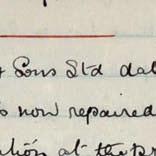 & Sons Ltd dat
s now repaired
ation at the pr